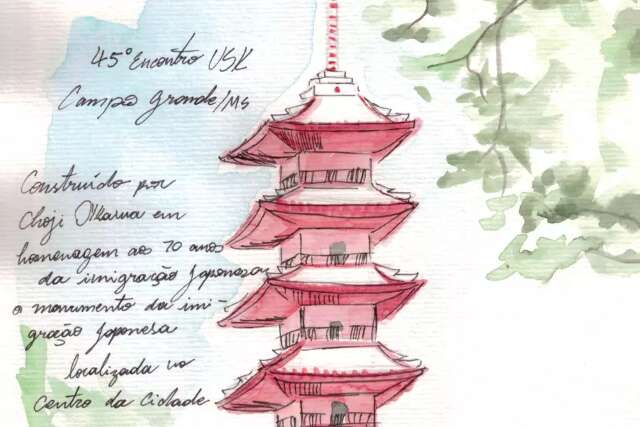 45º Encontro USK
Campo Grande/MS
Construído por
Choji Okama em
homenagem aos 70 anos
da imigração Japonesa,
o monumento da imi-
gração Japonesa
localizada no
Centro da Cidade